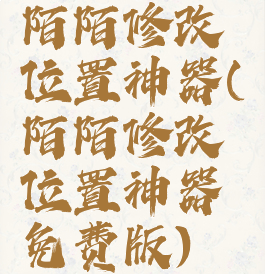 陌陌修改
位置神器(
陌陌修改
位置神器
免费版)